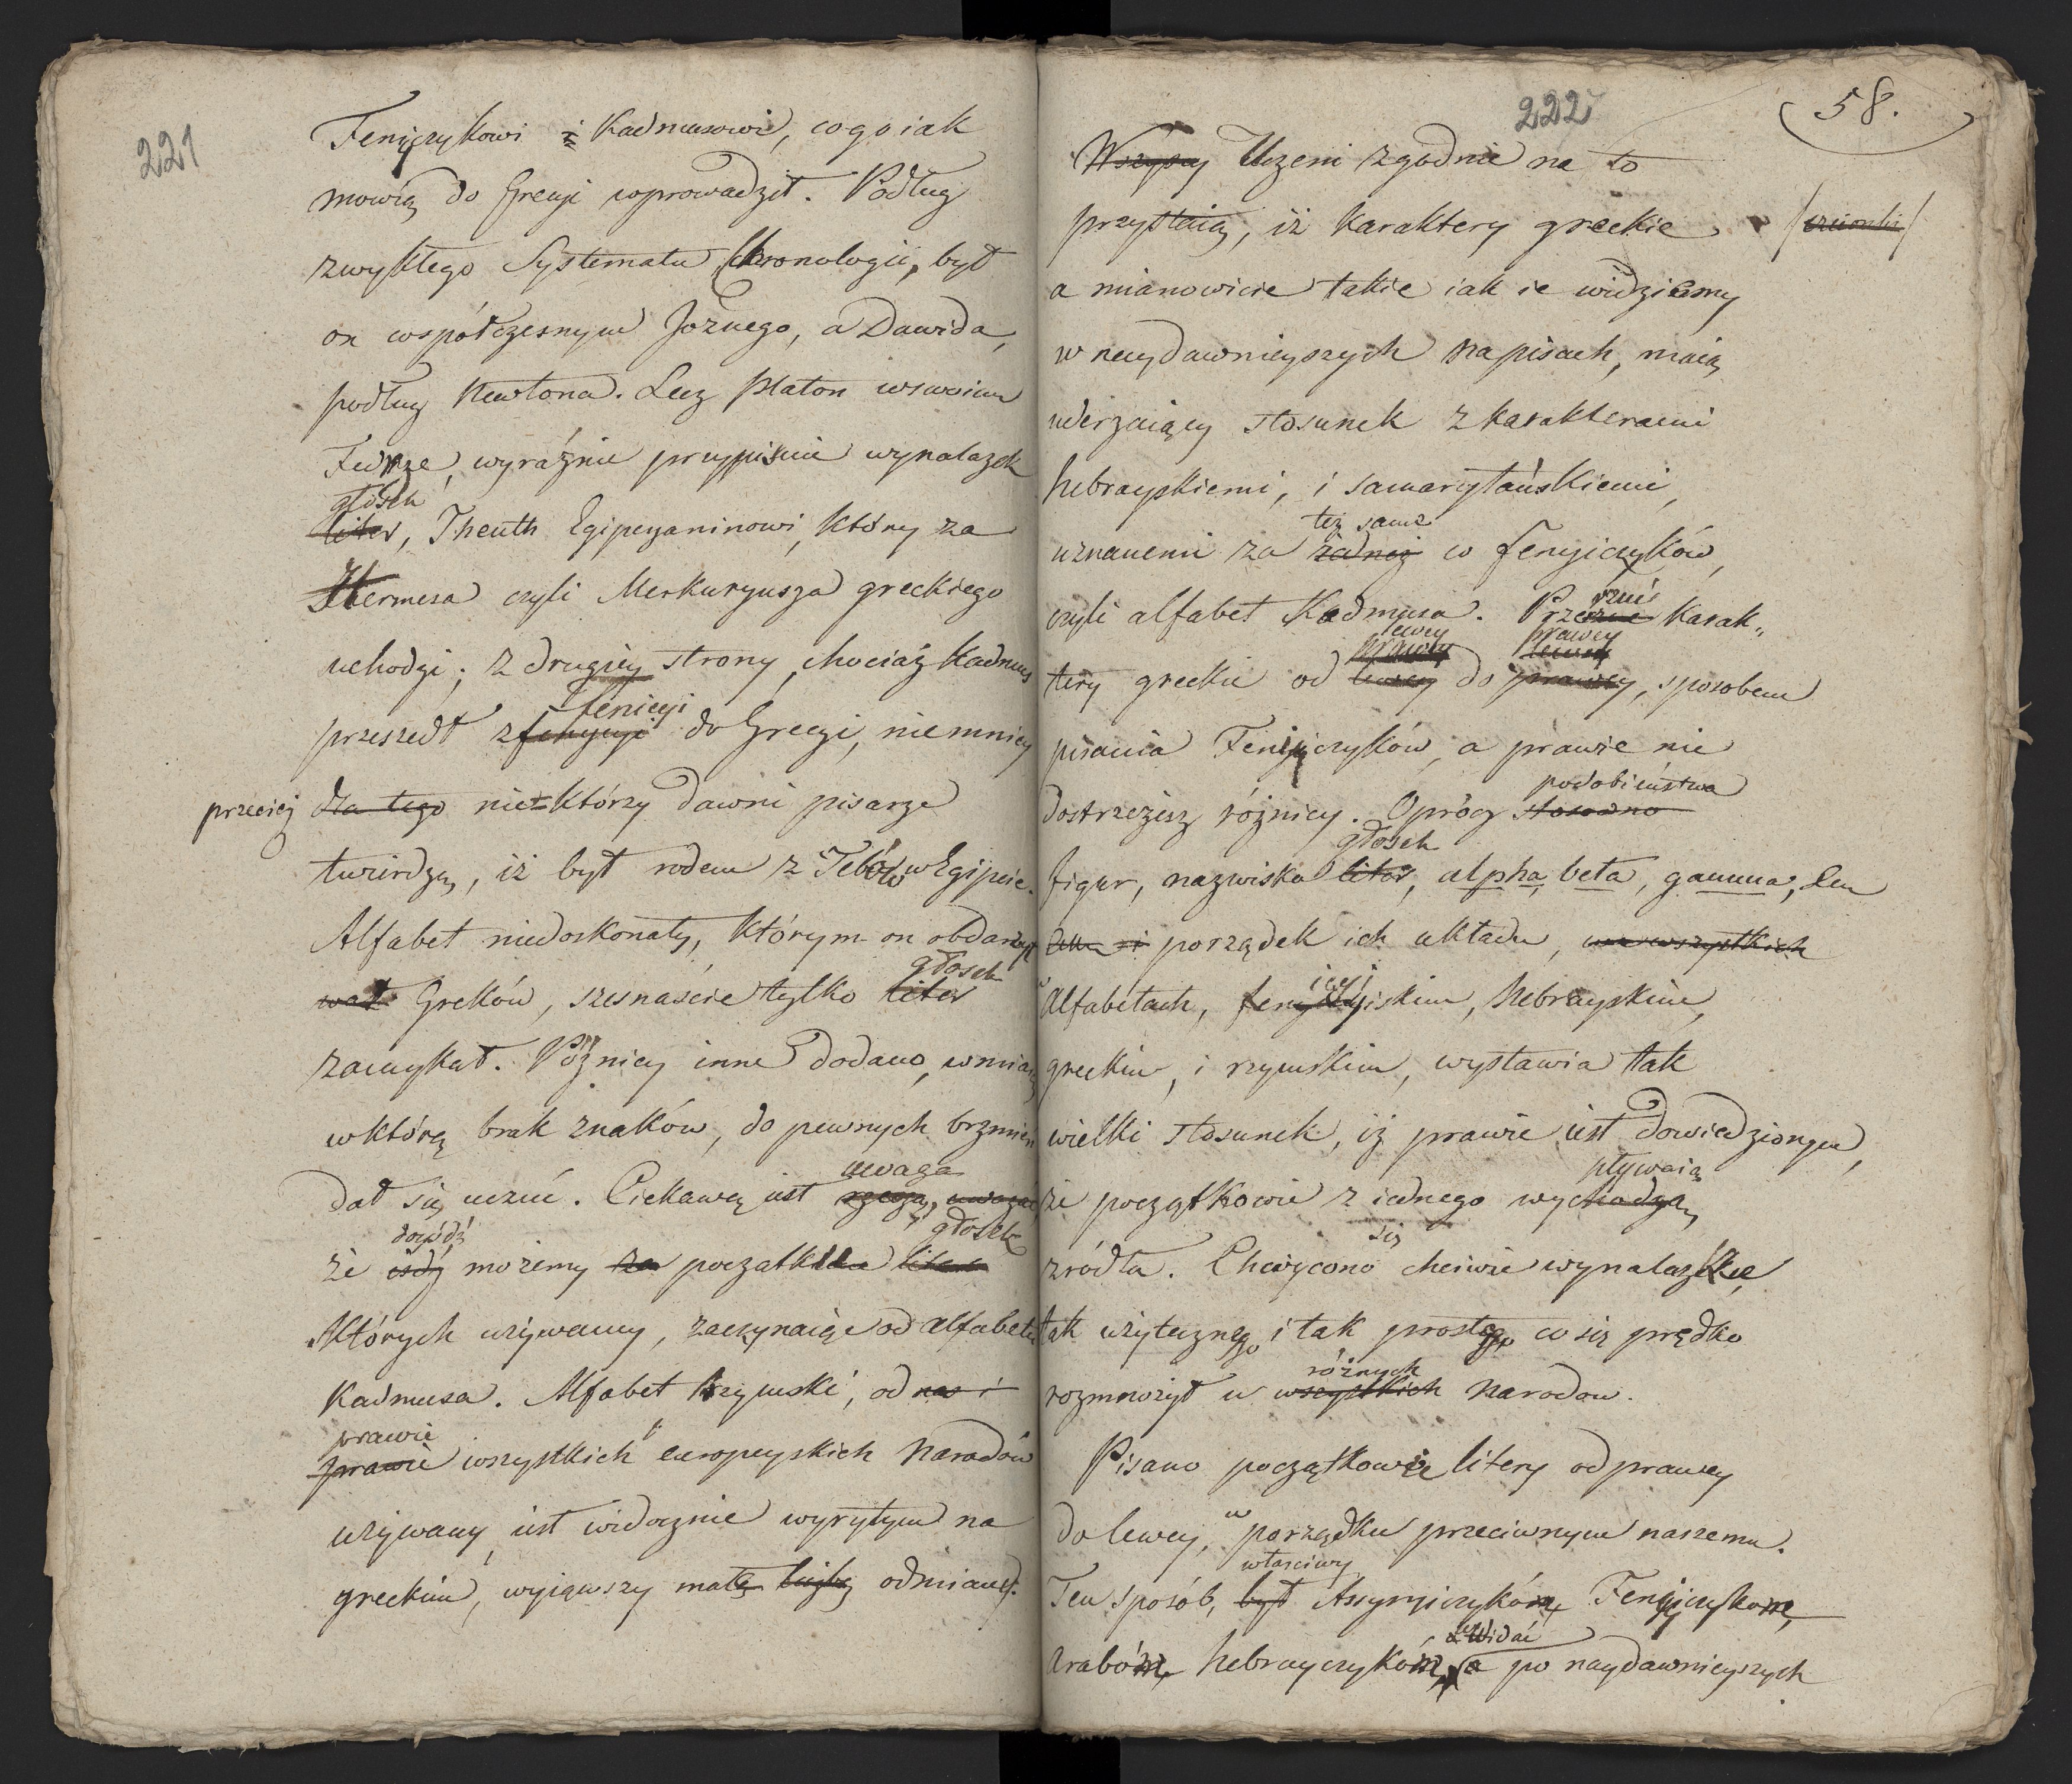 221
Feniyczykowi i Kadmusowi, co go iak
mowią do Grecyi wprowadził. Podług
zwykłego Systematu Chronologii, był
on współczesnym Jozuego, a Dawida,
podług Newtona. Lecz Platon w swoim
Fedrze, wyráźnie przypisuie wynalazek
głosek
liter, Theuth Egipcyaninowi, który za
Hermesa czyli Merkuryusza greckiego
uchodzi; z drugiey strony, chociaż Kadmus
fenicyi
przeszedł z fenycyi do Grecyi, niemniey
przecież dla tego nie-którzy dawni pisarze
twierdzą, iż był rodem z Tebów w Egipcie.
Alfabet niedoskonały, którym on obdarzył
głosek
wał Greków, szesnaście tylko liter
zamykał. Pózniey inne dodano, w miarę
w którą brak znaków, do pewnych brzmień
uwaga
dał się uczuć. Ciekawą iest rzeczą, uważać,
dóydź głosek
że iśdź możemy za początkiem liter
których używamy, zaczynaiąc od alfabetu
Kadmusa. Alfabet rzymski, od nas i
prawie
prawie wszystkich europeyskich Narodów
używany, iest widocznie wyrytym na
greckim, wyiąwszy małą liczbę odmian.
222
58.
Wszyscy Uczeni zgodnie na to
przystaią, iż karaktery greckie
a mianowicie takie iak ie widziemy
w naydawnieyszych napisach, maią
uderzaiący stosunek z karakterami
hebrayskiemi, i samarytańskiemi,
też same
uznanemi za iedneż co fenyiczyków,
czyli alfabet Kadmusa. Przerzuć karak„
lewey prawey
prawey lewey
tery greckie od lewey do prawey, sposobem
pisania Feniyczyków, a prawie nie
podobieństwa
dostrzeżesz różnicy. Oprócz stosowno
głosek
figur, nazwiska liter, alpha, beta, gamma, ten
ten i porządek ich układu, we wszystkich
w Alfabetach, fenicyiskim, hebrayskim,
greckim, i rzymskim, wystawia tak
wielki stosunek, iż prawie iest dowiedzionym,
pływaią
że początkowie z iednego wychodzą
się
zródła. Chwycono chciwie wynalazku
tak użytecznego i tak prostego co się prędko
różnych
rozmnożył u wszystkich Narodow.
Pisano początkowie litery od prawey
do lewey, w porządku przeciwnym naszemu.
własciwy
Ten sposób, był Assyryiczykóm, Feniyczykom,
widać
Arabóm, hebrayczykóm, a po naydawnieyszych